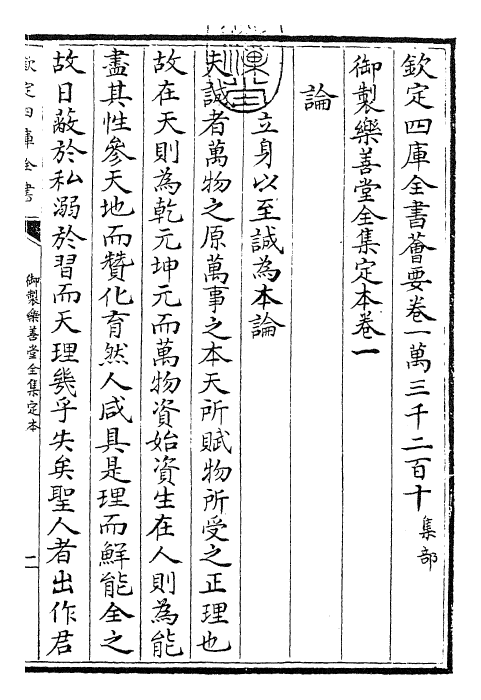 欽定四庫全書薈要卷一萬三千二百十 集部
御製樂善堂全集定本卷一
論
立身以至誠為本論
夫誠者萬物之原萬事之本天所賦物所受之正理也
故在天則為乾元坤元而萬物資始資生在人則為能
盡其性參天地而贊化育然人咸具是理而鮮能全之
故日蔽於私溺於習而天理幾乎失矣聖人者出作君
欽定四庫全書
御製樂善堂全集定本
二